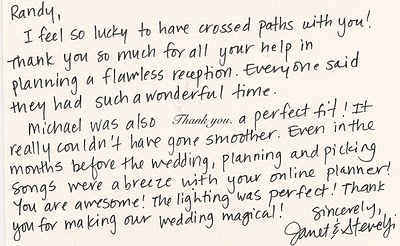 Randy,
I feel so lucky to have crossed paths with you!
Thank you so much for all your help in
planning a flawless reception. Everyone said
they had such a wonderful time.
Michael was also Thank you. a perfect fit! It
really couldn't have gone smoother. Even in the
months before the wedding, planning and picking
songs were a breeze with your online planner!
You are awesome! The lighting was perfect! Thank
you for making our wedding magical! Sincerely,
Janet &